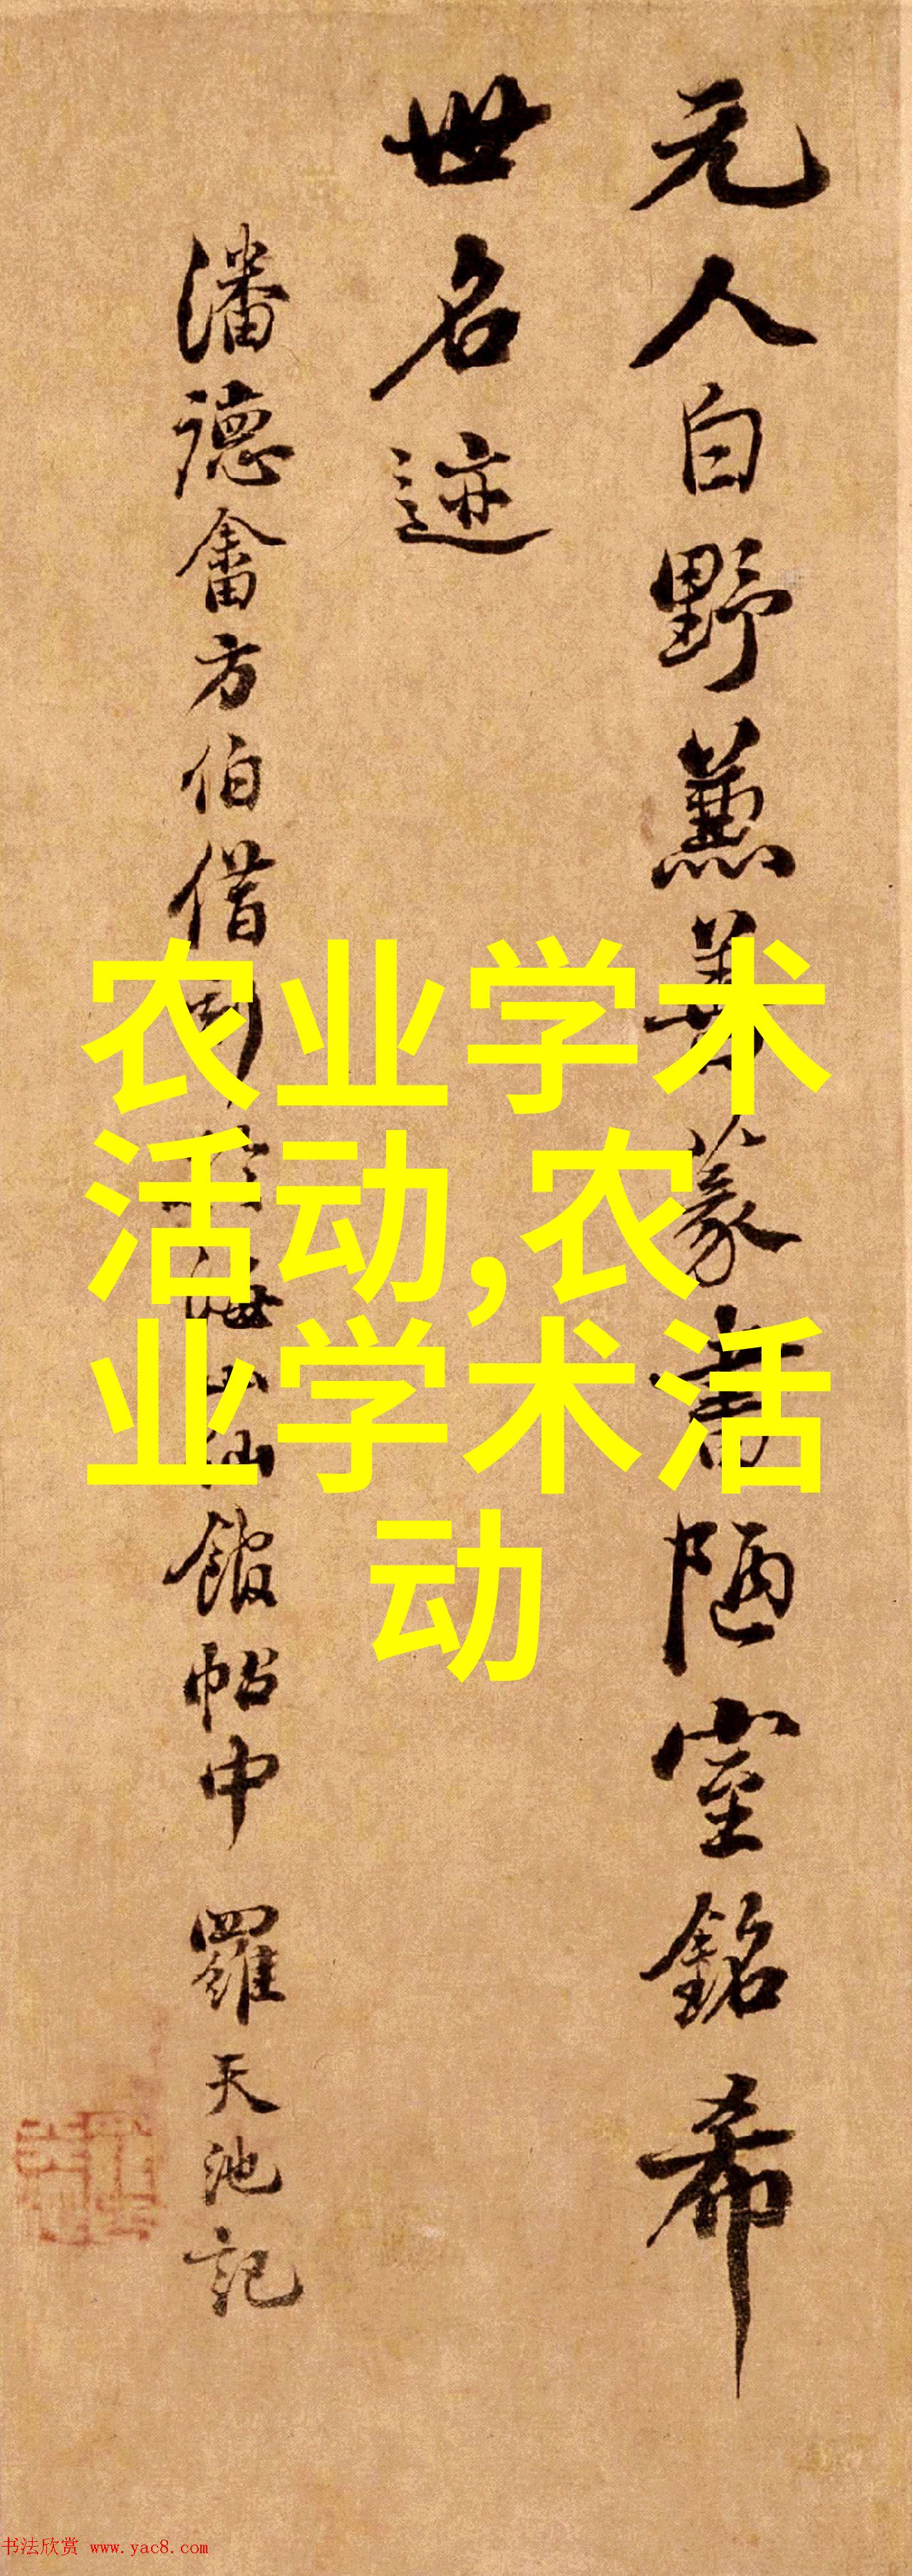 元人白野兼善篆書陋室銘希
世名迹
潘德畬方伯借刻於海山仙館帖中 羅天池記
农业学术
活动,农
业学术活
动
书法欣赏 www.yac8.com